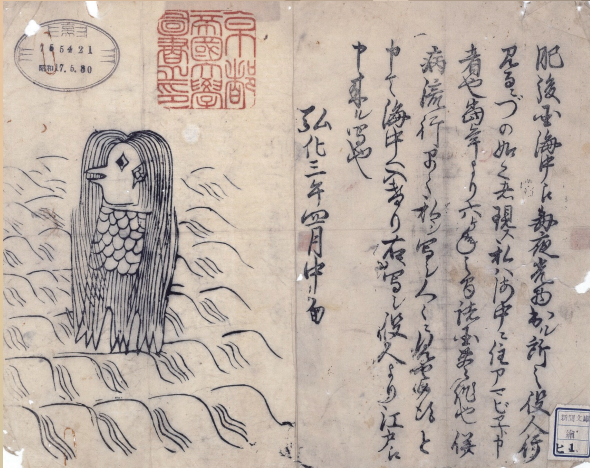 肥後国海中え毎夜光物出ル所之役人行
見るニづの如之者現ス私ハ海中ニ住アマビヱト申
者也当年より六ヶ年之間諸国豊作也併
病流行早々私ヲ写シ人々ニ見セ候得と
申て海中へ入けり右写シ役人より江戸え
申来ル写也
弘化三年四月中旬
京都
帝國大學
圖書之印
昭和17.5.30
新聞文庫
ヒ1